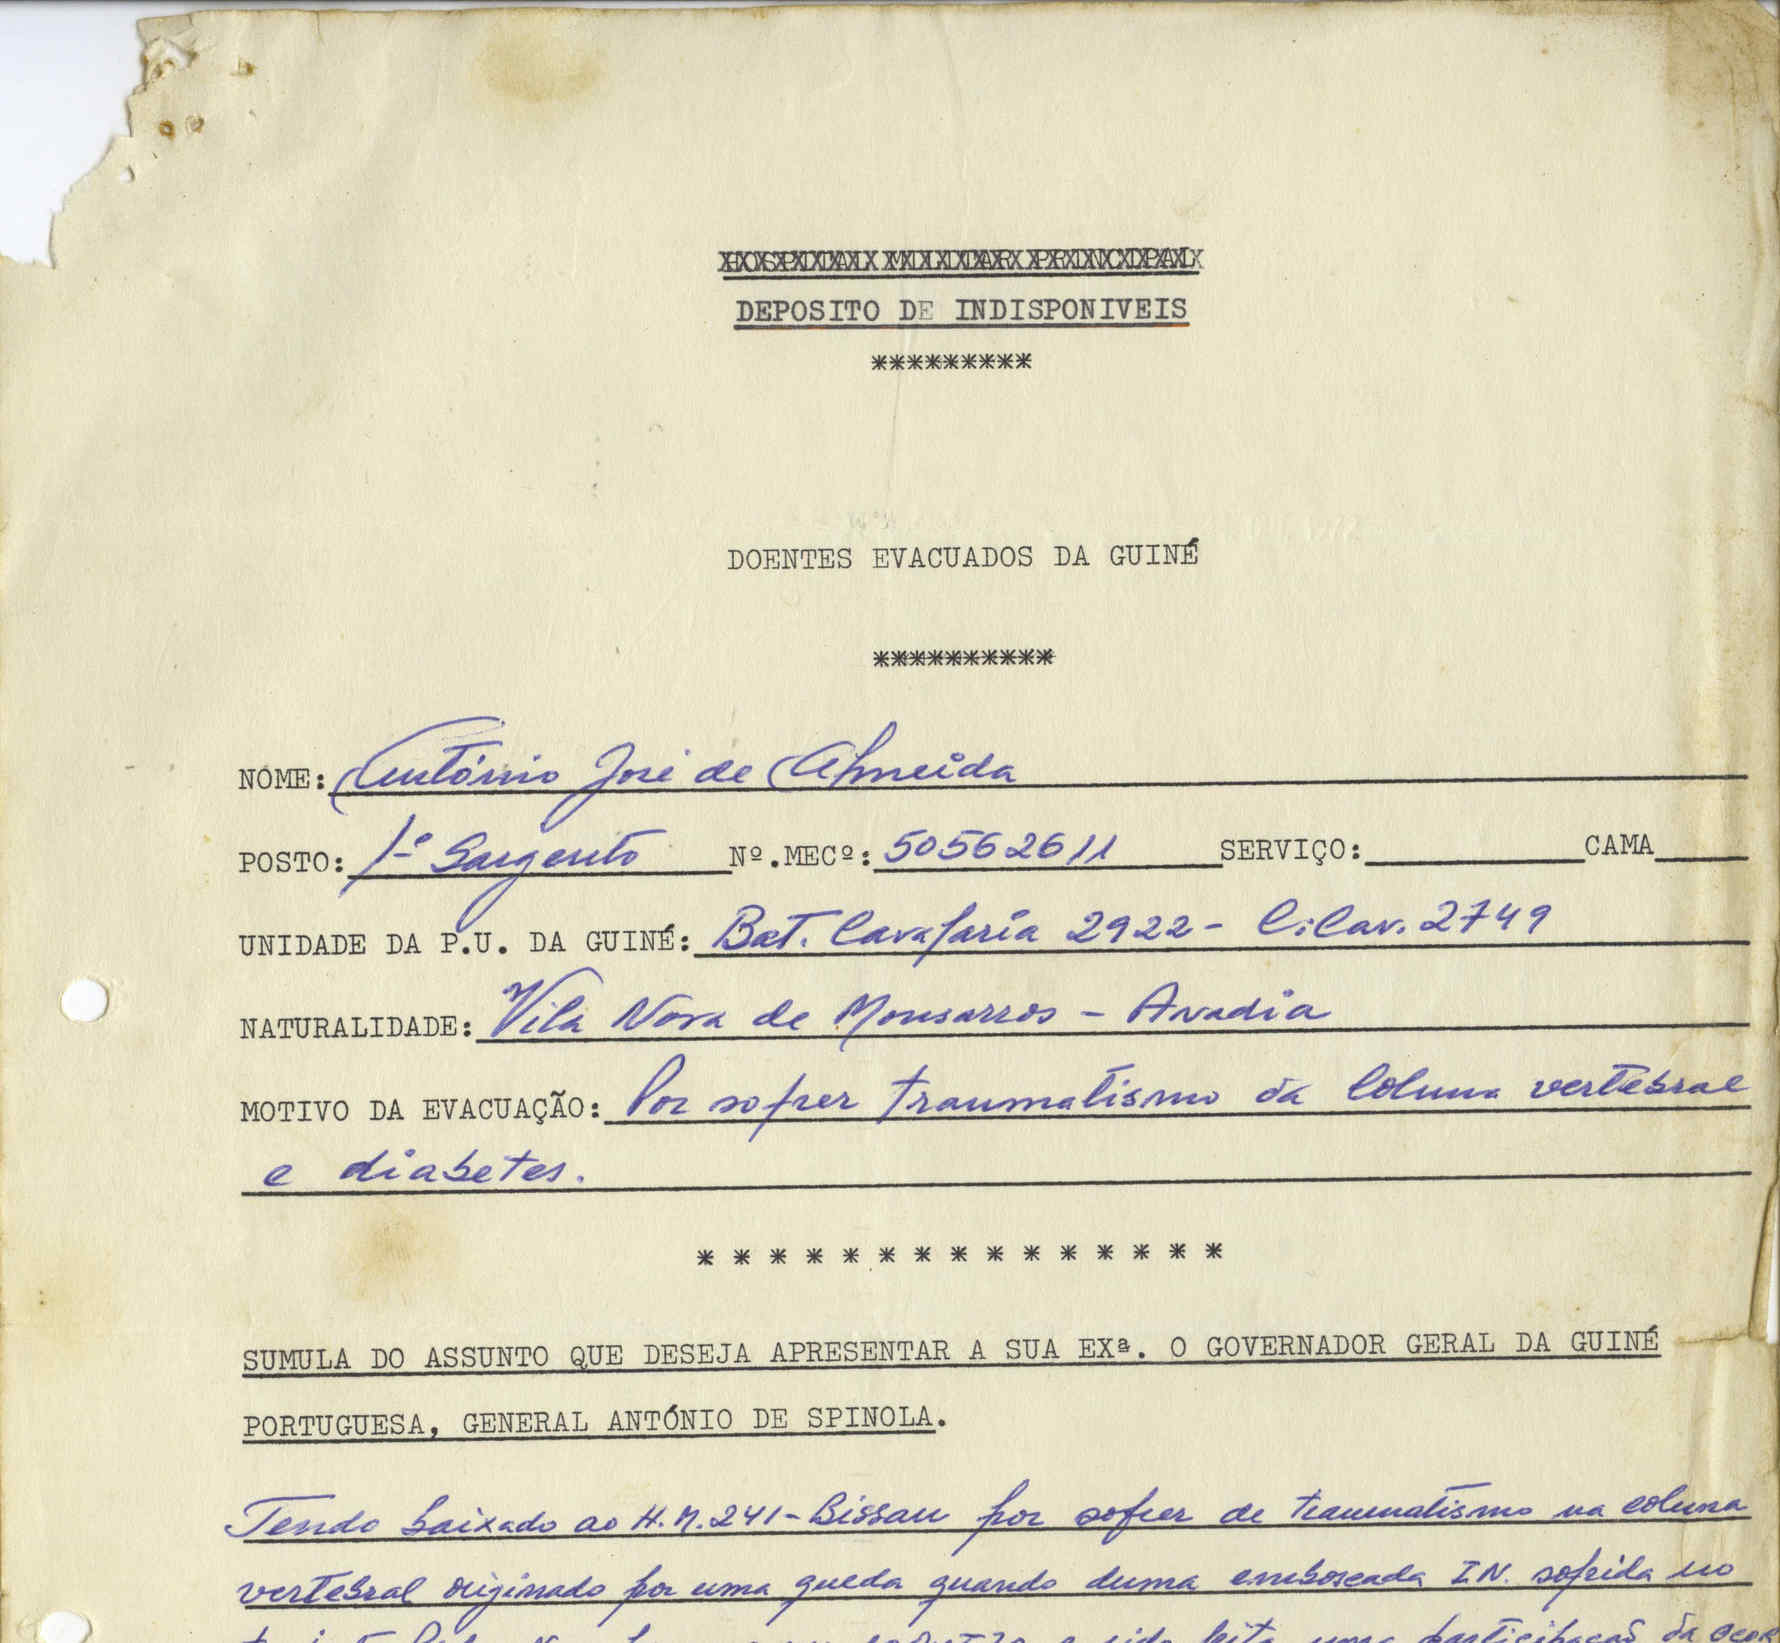 HOSPITAL MILITAR PRINCIPAL
DEPOSITO DE INDISPONIVEIS
*********
DOENTES EVACUADOS DA GUINÉ
**********
NOME: António José de Almeida
POSTO: 1º Sargento Nº.MECº: 50562611 SERVIÇO: CAMA
UNIDADE DA P.U. DA GUINÉ: Bat. Cavalaria 2922 - C.Cav. 2749
NATURALIDADE: Vila Nova de Monsarros - Anadia
MOTIVO DA EVACUAÇÃO: Por sofrer traumatismo da Coluna vertebral
e diabetes.
* * * * * * * * * * * * * * *
SUMULA DO ASSUNTO QUE DESEJA APRESENTAR A SUA EXª. O GOVERNADOR GERAL DA GUINÉ
PORTUGUESA, GENERAL ANTÓNIO DE SPINOLA.
Tendo baixado ao H.M.241-Bissau por sofrer de traumatismo na coluna
vertebral originado por uma queda quando duma emboscada IN. sofrida no
sido feita uma participação da